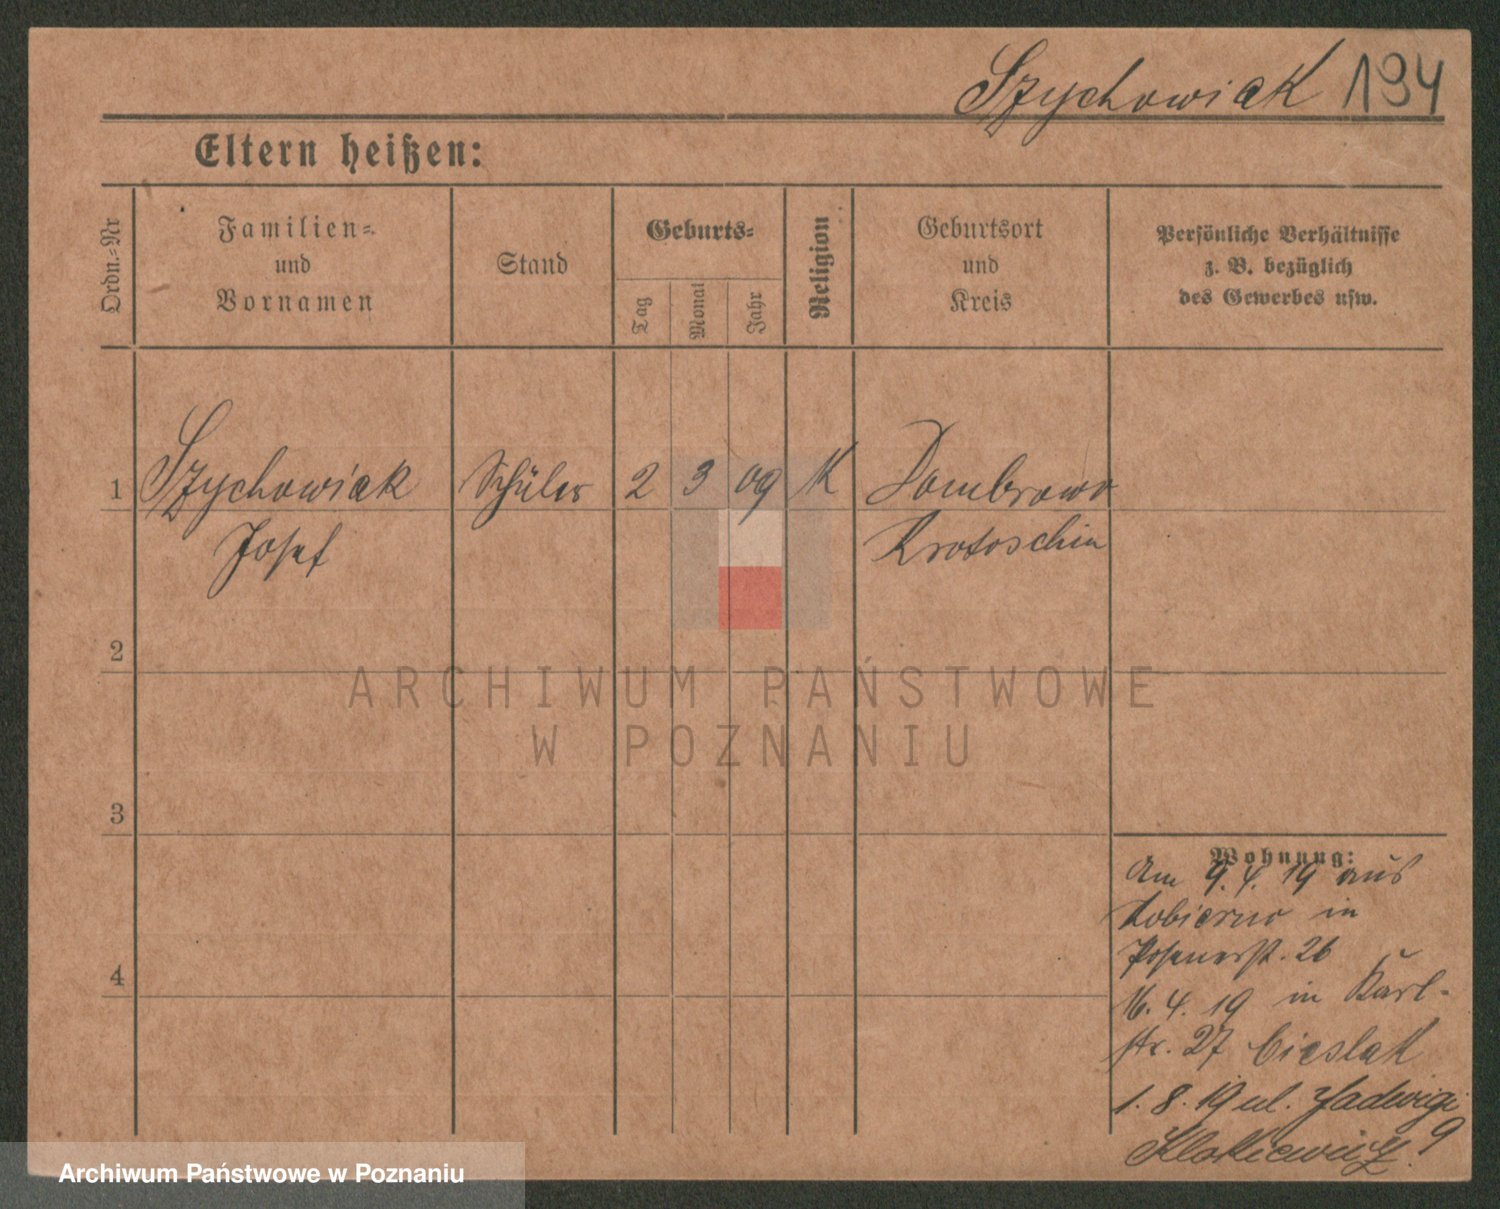 Szychowiak 194
Eltern heißen:
Ordn.-Nr
Familien-
und
Vornamen
Stand
Geburts-
Tag
Monat
Jahr
Religion
Geburtsort
und
Kreis
Persönliche Verhältnisse
z. B. bezüglich
des Gewerbes usw.
1 Szychowiak Schüler 2 3 09 K Dombrowo
Josef Krotoschin
2
3
4
Wohnung:
Am 9. 4. 19 aus
Kobierno in
Posenerst. 26
16. 4. 19 in Karl-
str. 27 Cieslak
1. 8. 19 ul. Jadwigi 9
ARCHIWUM PAŃSTWOWE
W POZNANIU
Archiwum Państwowe w Poznaniu